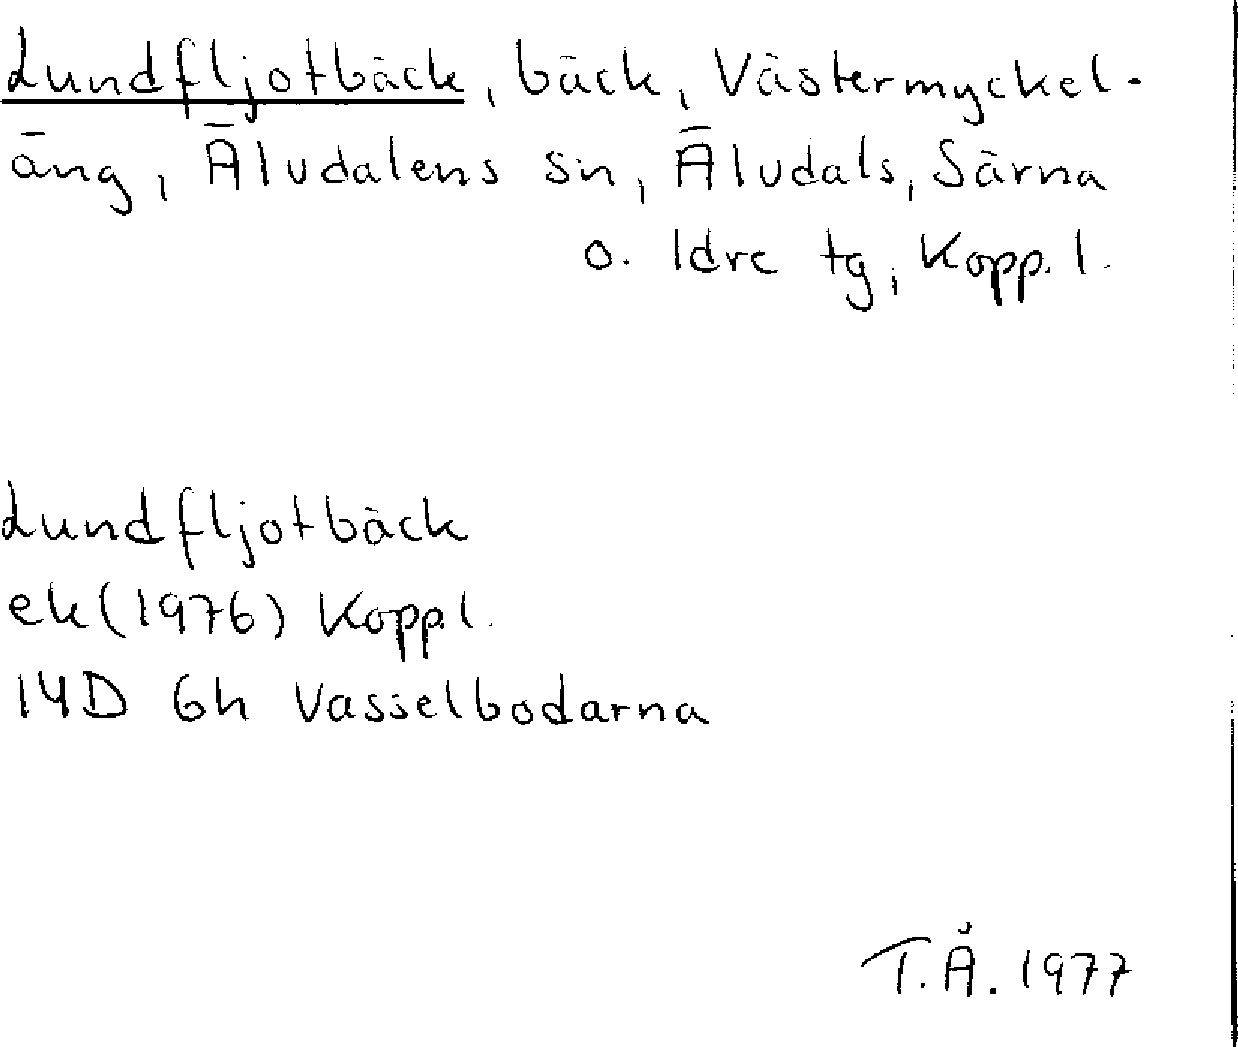 Lundfljotbäck, bäck, Västermyckel-
äng, Älvdalens sn, Älvdals, Särna
o. Idre tg, Kopp. l.
Lundfljotbäck
ek (1976) Kopp.l.
14D 6h Vasselbodarna
T.Å. 1977